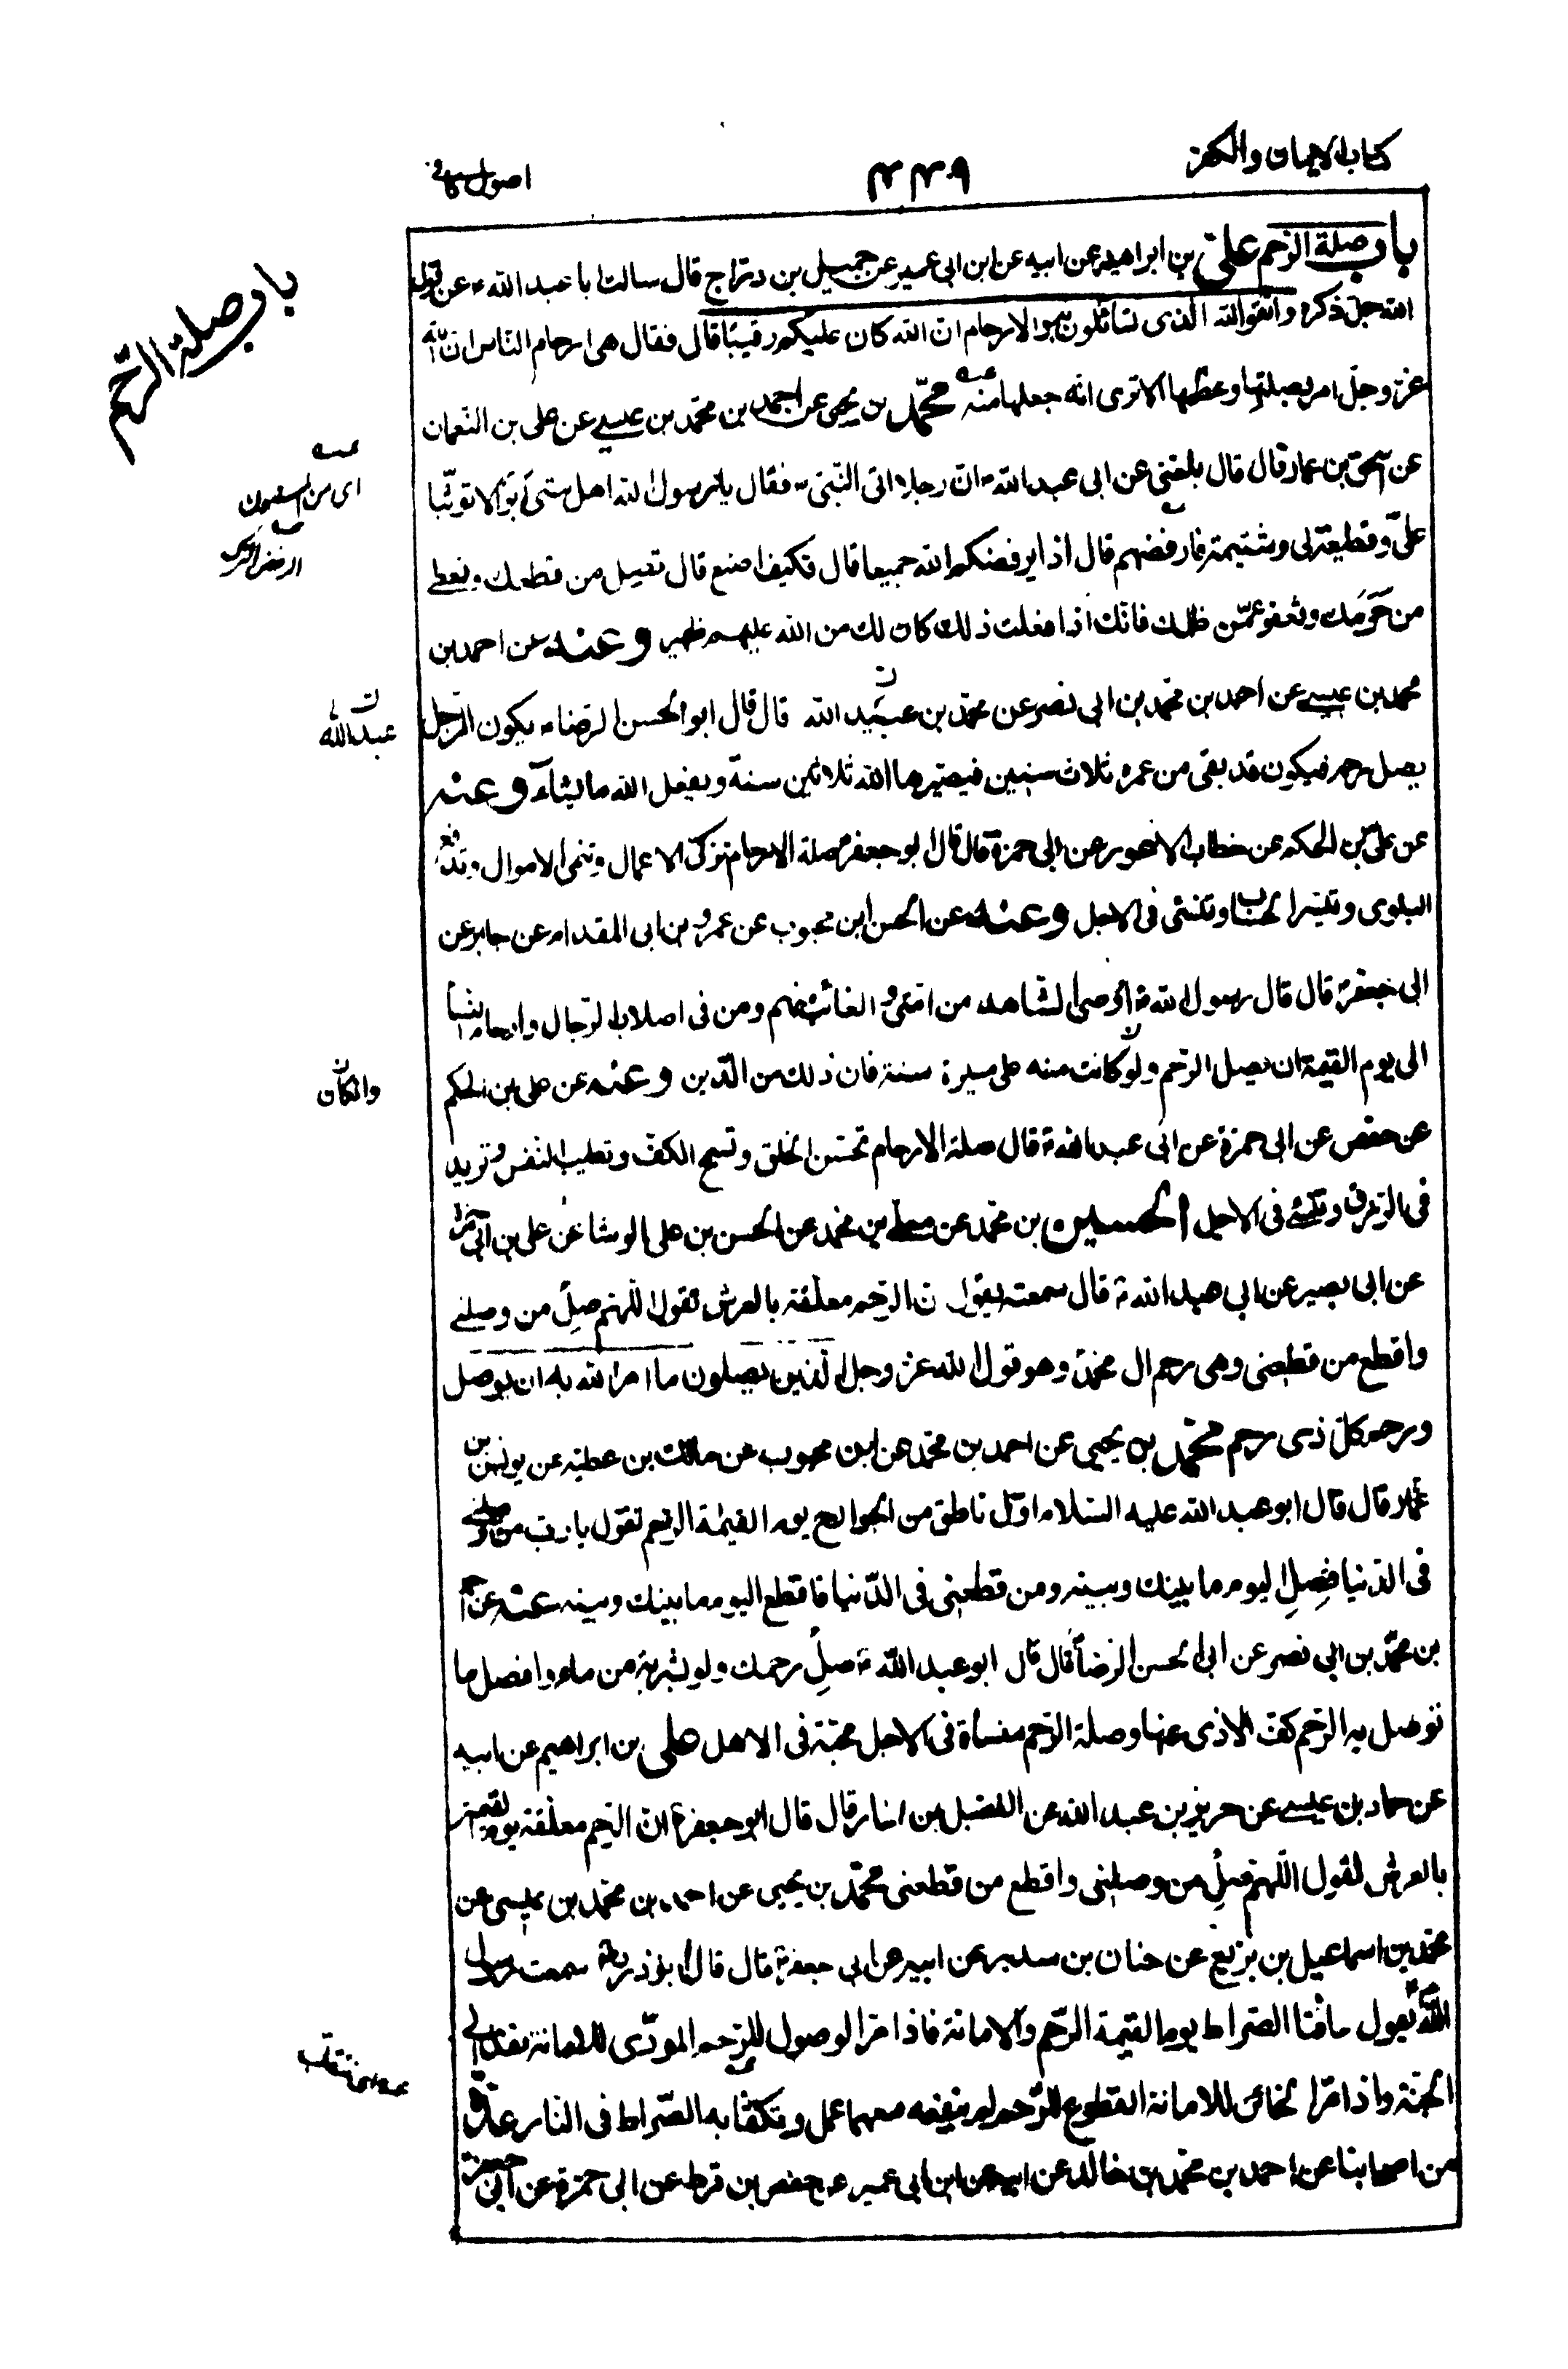 كتاب الايمان والكفر
٤٤٩
اصول كافى
باب صلة الرحم على بن ابراهيم عن ابيه عن ابن ابى عمير عن جميل بن دراج قال سالت ابا عبد الله ع عن قول
الله جل ذكره واتقوا الله الذى تسائلون به والارحام ان الله كان عليكم رقيبا قال فقال هى ارحام الناس ان الله
عز وجل امر بصلتها وعظمها الا ترى انه جعلها منه محمد بن يحيى عن احمد بن محمد بن عيسى عن على بن النعمان
عن اسحق بن عمار قال قال بلغنى عن ابى عبد الله ع ان رجلا اتى النبى ص فقال يا رسول الله اهل بيتى ابوا الا توثبا
على وقطيعة لى وشتيمة فارفضهم قال اذا يرفضكم الله جميعا قال فكيف اصنع قال تصل من قطعك وتعطى
من حرمك وتعفو عمن ظلمك فانك اذا فعلت ذلك كان لك من الله عليهم ظهير وعنه عن احمد بن
محمد بن عيسى عن احمد بن محمد بن ابى نصر عن محمد بن عبيد الله قال قال ابو الحسن الرضا ء يكون الرجل
يصل رحمه فيكون قد بقى من عمره ثلاث سنين فيصيرها الله ثلاثين سنة ويفعل الله ما يشاء وعنه
عن على بن الحكم عن خطاب الاعور عن ابى حمزة قال قال ابو جعفر ع صلة الارحام تزكى الاعمال وتنمى الاموال وتدفع
البلوى وتيسر الحساب وتنسئ فى الاجل وعنه عن الحسن ابن محبوب عن عمرو بن ابى المقدام عن جابر عن
ابى جعفر ع قال قال رسول الله ص اوصى الشاهد من امتى والغائب منهم ومن فى اصلاب الرجال وارحام النساء
الى يوم القيمة ان يصل الرحم ولو كانت منه على مسيرة سنة فان ذلك من الدين وعنه عن على بن الحكم
عن حفص عن ابى حمزة عن ابى عبد الله ع قال صلة الارحام تحسن الخلق وتسمح الكف وتطيب النفس وتزيد
فى الرزق وتنسئ فى الاجل الحسين بن محمد عن معلى بن محمد عن الحسن بن على الوشا عن على بن ابى حمزة
عن ابى بصير عن ابى عبد الله ع قال سمعته يقول ان الرحم معلقة بالعرش تقول اللهم صل من وصلنى
واقطع من قطعنى وهى رحم ال محمد وهو قول الله عز وجل الذين يصلون ما امر الله به ان يوصل
ورحم كل ذى رحم محمد بن يحيى عن احمد بن محمد عن ابن محبوب عن مالك بن عطية عن يونس بن
عمار قال قال ابو عبد الله عليه السلام اول ناطق من الجوارح يوم القيمة الرحم تقول يا رب من وصلنى
فى الدنيا فصل اليوم ما بينك وبينه ومن قطعنى فى الدنيا فاقطع اليوم ما بينك وبينه عنه عن احمد
بن محمد بن ابى نصر عن ابى الحسن الرضا ع قال قال ابو عبد الله ع صل رحمك ولو بشربة من ماء وافضل ما
توصل به الرحم كف الاذى عنها وصلة الرحم منساة فى الاجل محبة فى الاهل على بن ابراهيم عن ابيه
عن حماد بن عيسى عن حريز بن عبد الله عن الفضيل بن يسار قال قال ابو جعفر ع ان الرحم معلقة يوم القيمة
بالعرش تقول اللهم صل من وصلنى واقطع من قطعنى محمد بن يحيى عن احمد بن محمد بن عيسى عن
محمد بن اسماعيل بن بزيع عن حنان بن سدير عن ابيه عن ابى جعفر ع قال قال ابو ذر رض سمعت رسول
الله ص يقول حافتا الصراط يوم القيمة الرحم والامانة فاذا مر الوصول للرحم المودى للامانة نفذ الى
الجنة واذا مر الخائن للامانة القطوع للرحم لم ينفعه معهما عمل وتكفأ به الصراط فى النار عدة
من اصحابنا عن احمد بن محمد بن خالد عن ابيه عن ابن ابى عمير عن حفص بن قرط عن ابى حمزة عن ابى جعفر
باب صلة الرحم
عبد الله
والمكان